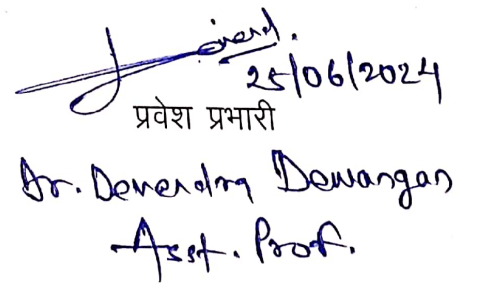 25/06/2024
प्रवेश प्रभारी
Dr. Devendra Dewangan
Asst. Prof.